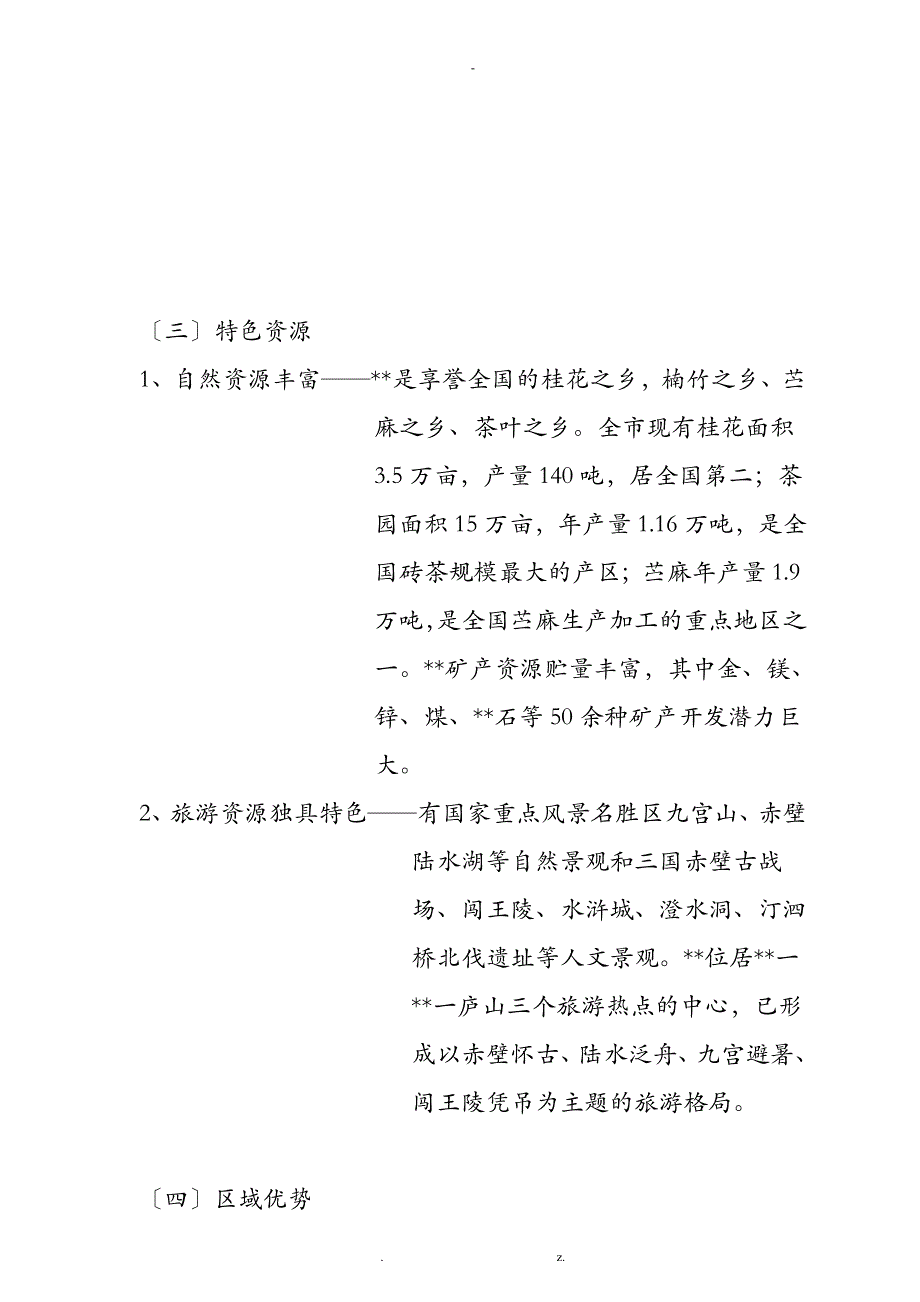 -
〔三〕特色资源
1、自然资源丰富——**是享誉全国的桂花之乡，楠竹之乡、苎
麻之乡、茶叶之乡。全市现有桂花面积
3.5 万亩，产量 140 吨，居全国第二；茶
园面积 15 万亩，年产量 1.16 万吨，是全
国砖茶规模最大的产区；苎麻年产量 1.9
万吨，是全国苎麻生产加工的重点地区之
一。**矿产资源贮量丰富，其中金、镁、
锌、煤、**石等 50 余种矿产开发潜力巨
大。
2、旅游资源独具特色——有国家重点风景名胜区九宫山、赤壁
陆水湖等自然景观和三国赤壁古战
场、闯王陵、水浒城、澄水洞、汀泗
桥北伐遗址等人文景观。**位居**一
**一庐山三个旅游热点的中心，已形
成以赤壁怀古、陆水泛舟、九宫避暑、
闯王陵凭吊为主题的旅游格局。
〔四〕区域优势
. z.